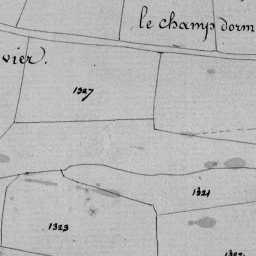 le champ dorm
vier.
1327
1321
1323